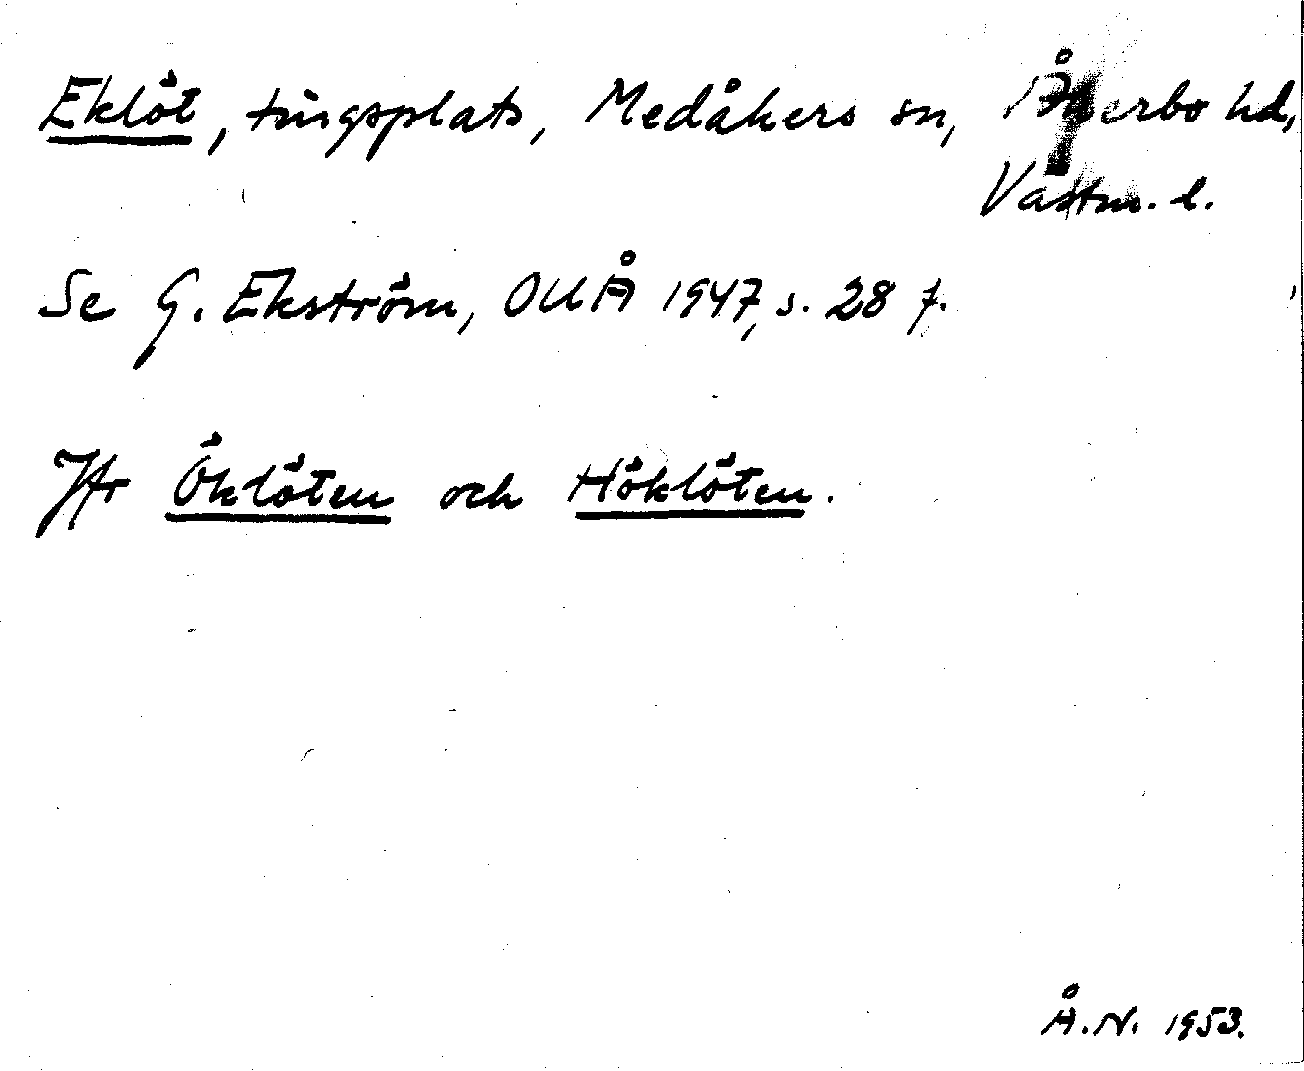 Eklöt, tingsplats, Medåkers sn, Åkerbo hd,
Västm. l.
Se G. Ekström, OUÅ 1947, s. 28 f.
Jfr Öklöten och Höklöten.
Å.N. 1953.